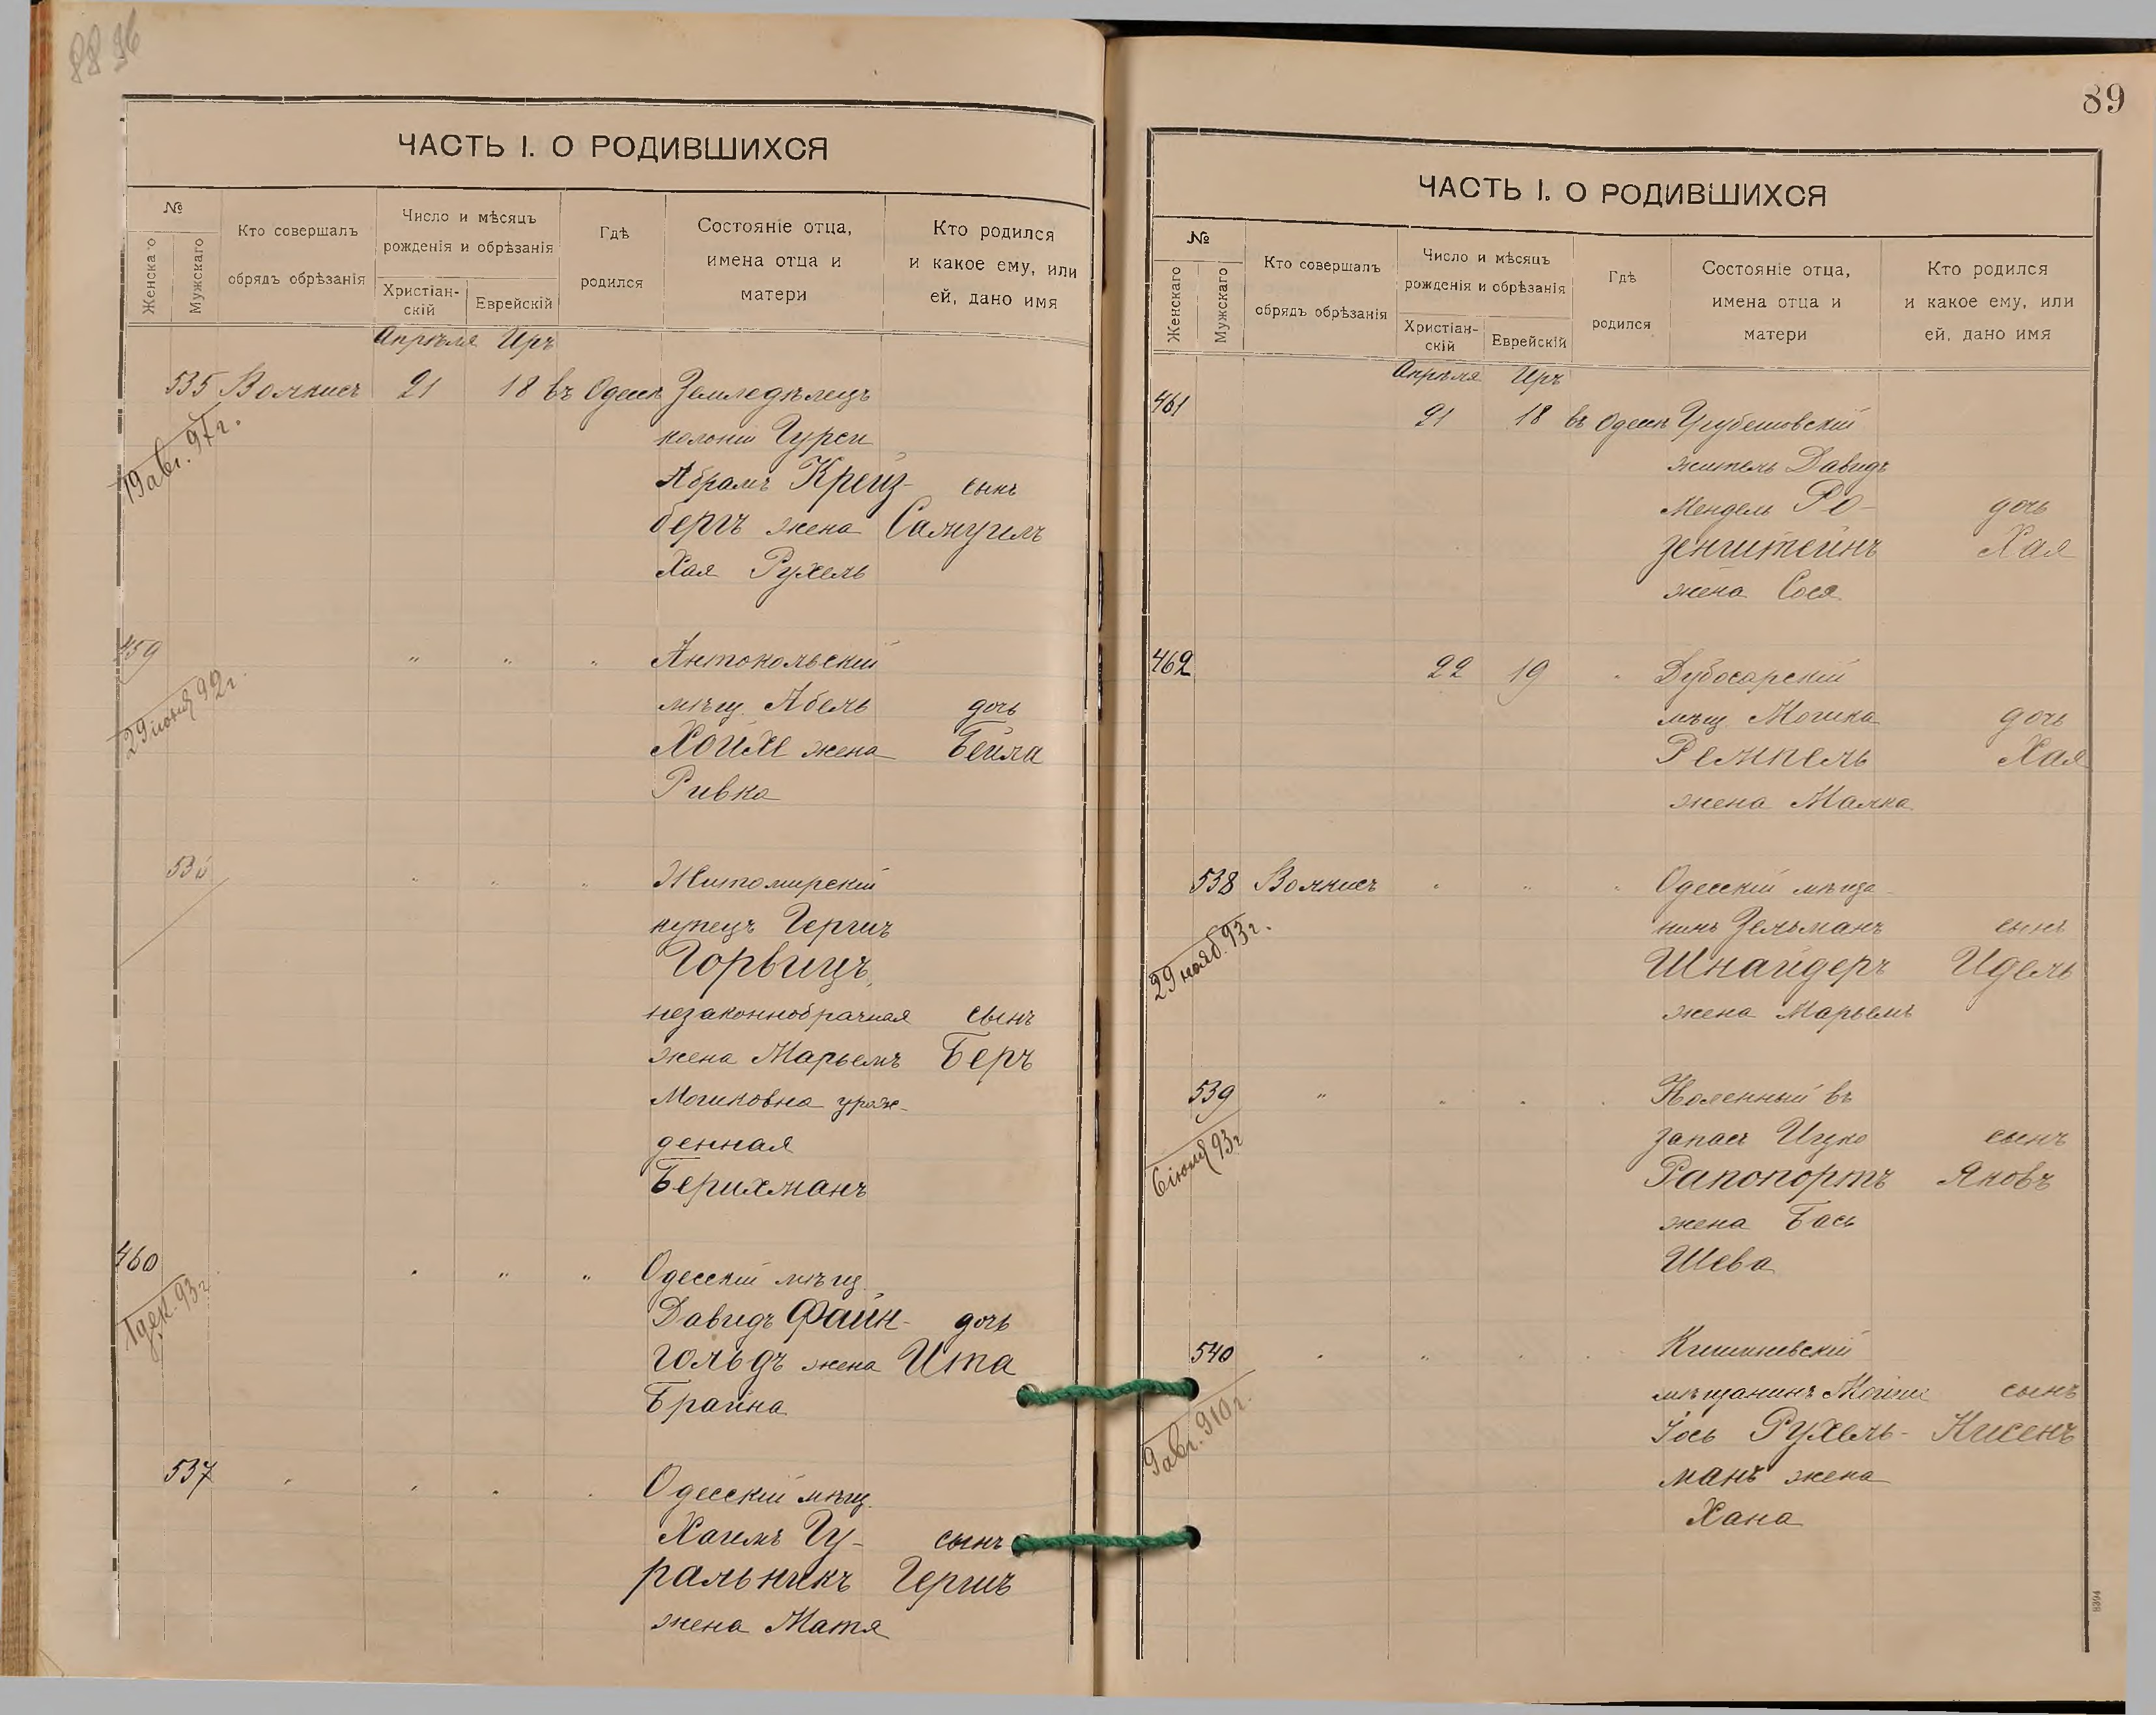 88 96
ЧАСТЬ I. О РОДИВШИХСЯ
№
Женскаго
Мужскаго
Кто совершалъ
обрядъ обрѣзанія
Число и мѣсяцъ
рожденія и обрѣзанія
Христіан-
скій
Еврейскій
Гдѣ
родился
Состояніе отца,
имена отца и
матери
Кто родился
и какое ему, или
ей, дано имя
Апрѣля Иръ
535 21 18 въ Одессѣ Земледѣлецъ
19 авг. 97 г.
колоніи
Абрамъ Крейз- сынъ
бергъ жена Самуилъ
Хая Рухель
459 " " " Антокольскій
29 іюня 92 г.
мѣщ. Абель дочь
Хойхе жена Бейла
Ривка
536 " " " Житомирскій
купецъ Гершъ
Горвицъ,
незаконнобрачная сынъ
жена Марьемъ Беръ
Мошковна урож-
денная
Берихманъ
460 " " " Одесскій мѣщ.
1 дек. 93 г.
Давидъ Файн- дочь
гольдъ жена Ита
Брайна
537 " " " " Одесскій мѣщ.
Хаимъ Гу- сынъ
ральникъ Гершъ
жена Матя
89
ЧАСТЬ I. О РОДИВШИХСЯ
№
Женскаго
Мужскаго
Кто совершалъ
обрядъ обрѣзанія
Число и мѣсяцъ
рожденія и обрѣзанія
Христіан-
скій
Еврейскій
Гдѣ
родился
Состояніе отца,
имена отца и
матери
Кто родился
и какое ему, или
ей, дано имя
Апрѣля Иръ
461 21 18 въ Одессѣ Грубешовскій
житель Давидъ
Мендель Ро- дочь
зенштейнъ Хая
жена Сося
462 22 19 " Дубосарскій
мѣщ. Мошка дочь
Ремпель Хая
жена Малка
538 " " " Одесскій мѣща-
29 нояб. 93 г.
нинъ Зельманъ сынъ
Шнайдеръ Идель
жена Марьемъ
539 " " " " въ
6 іюня 93 г.
запасъ Ицко сынъ
Рапопортъ Яковъ
жена Бась
Шева
540 " " " " Кишиневскій
9 авг. 910 г.
мѣщанинъ сынъ
Іось Рухель- Нисенъ
манъ жена
Хана